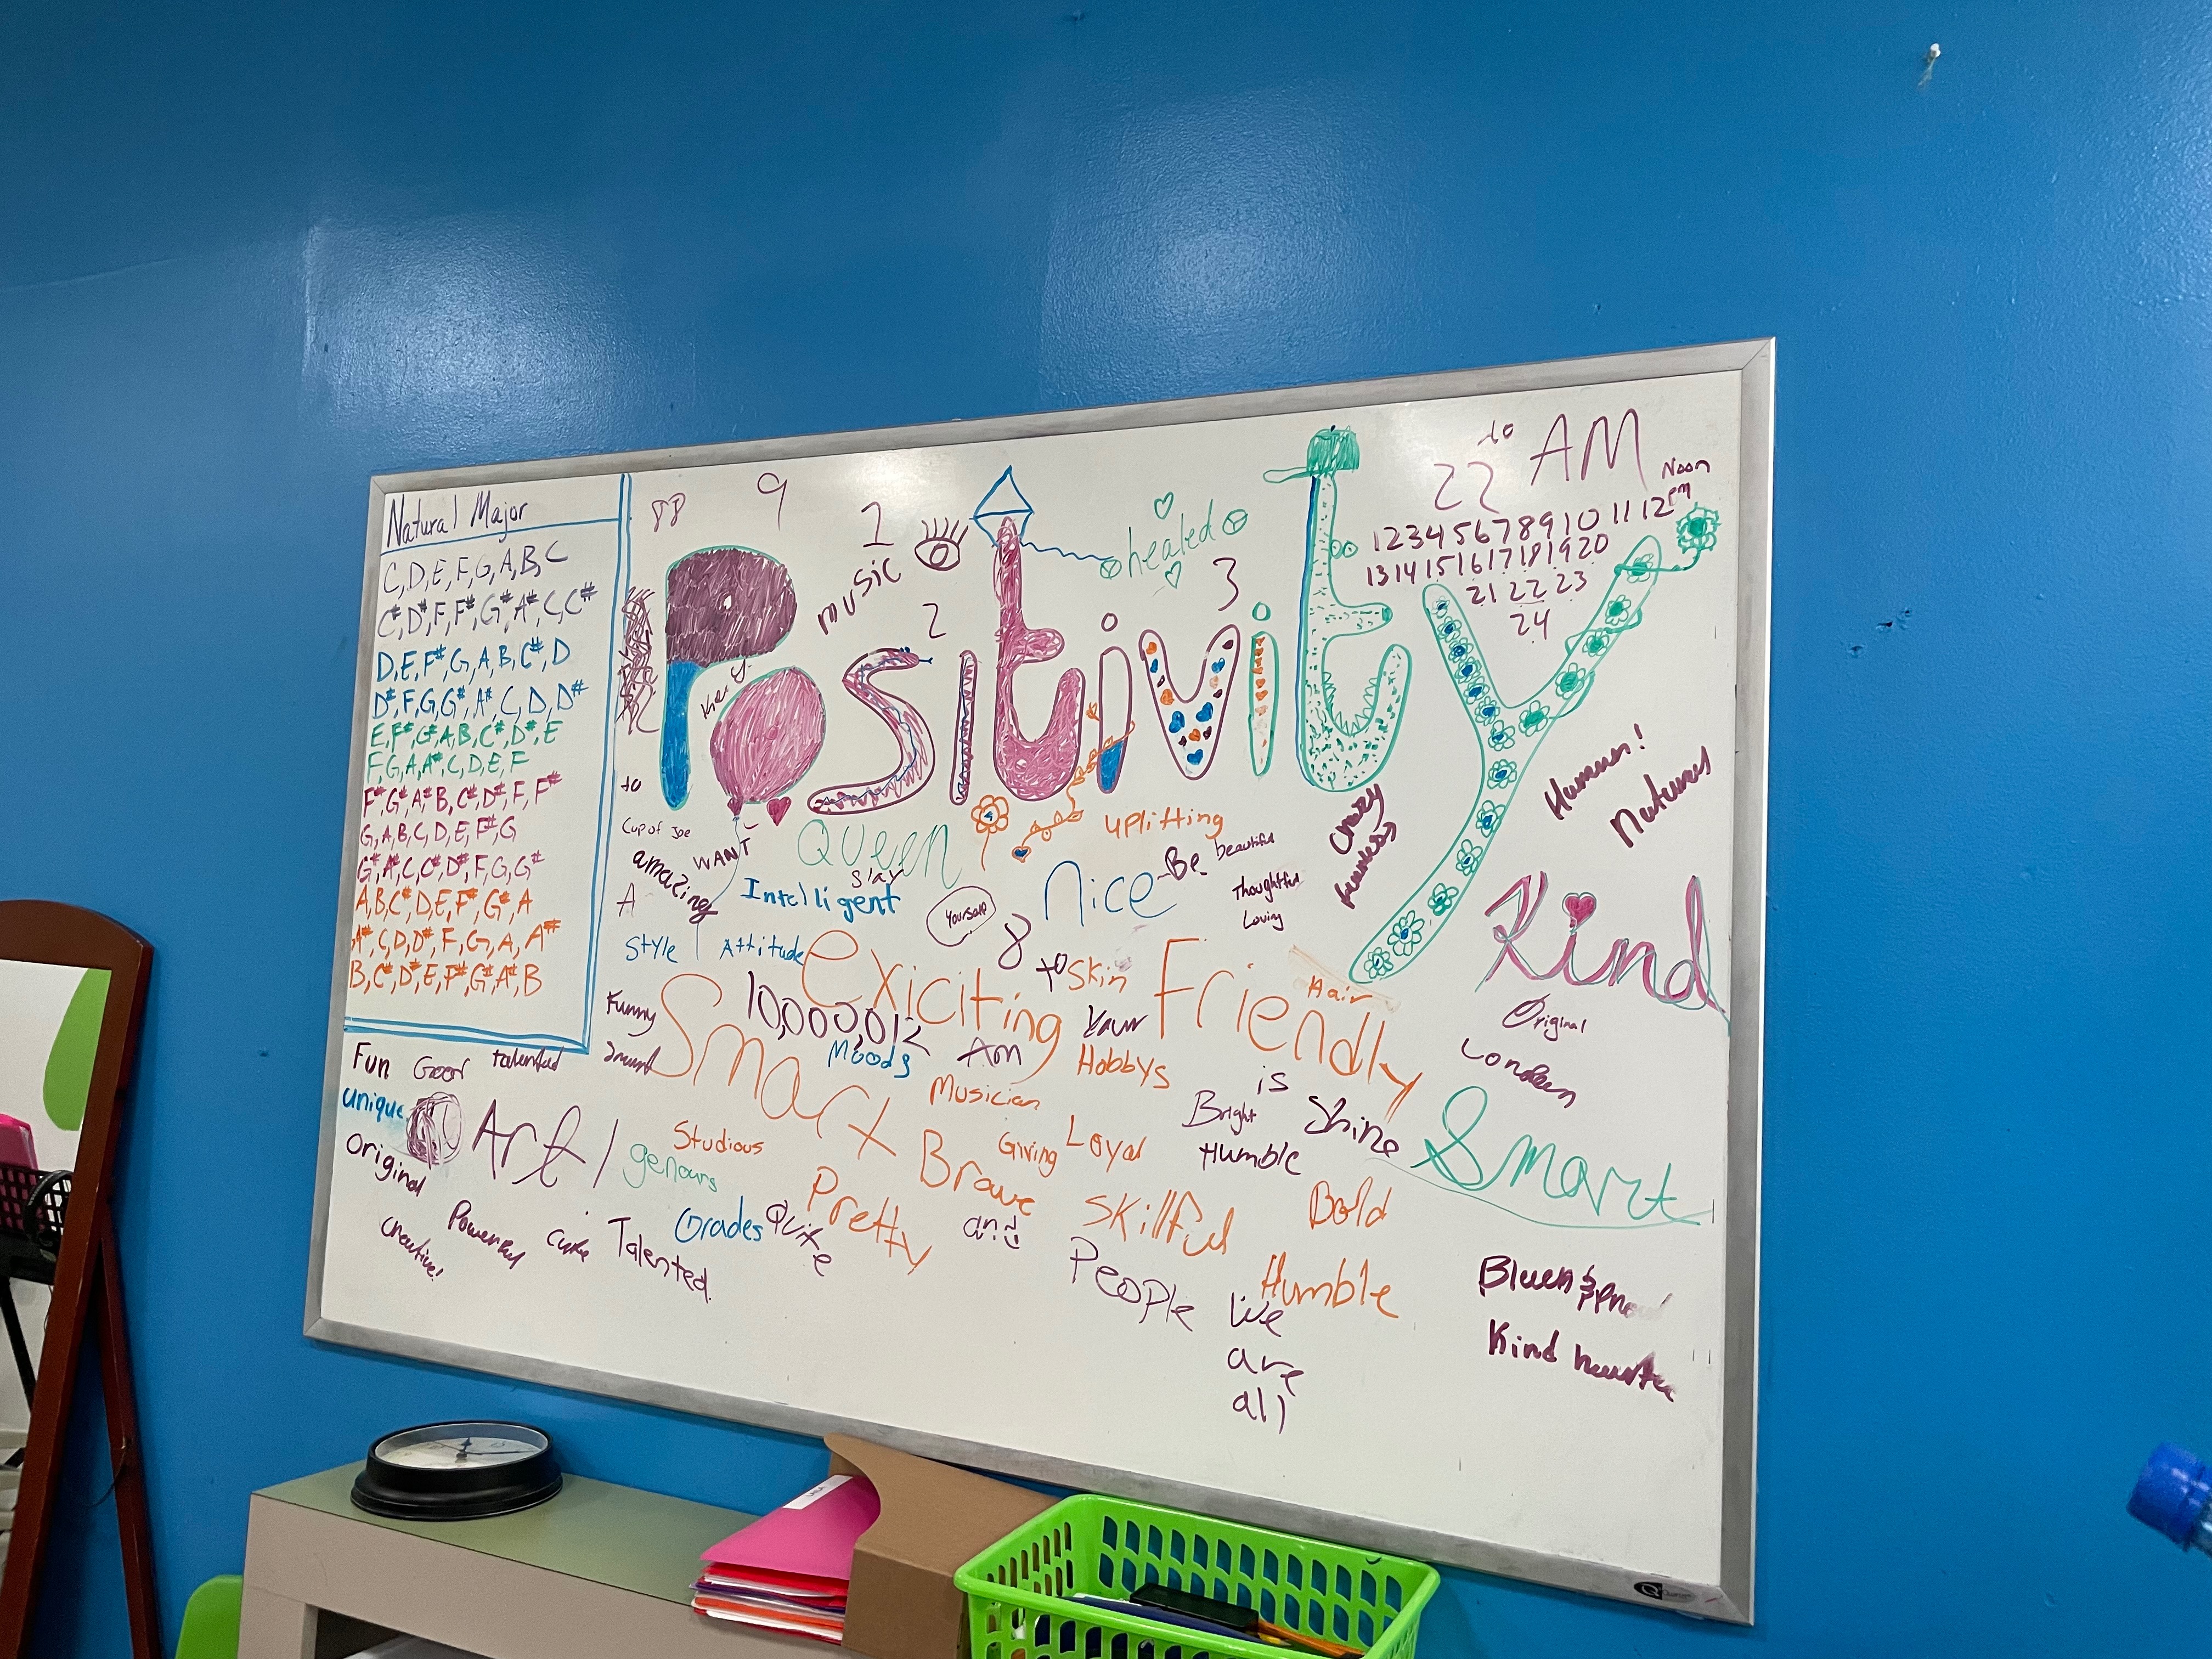 Natural Major
C, D, E, F, G, A, B, C
C#, D#, F, F#, G#, A#, C, C#
D, E, F#, G, A, B, C#, D
D#, F, G, G#, A#, C, D, D#
E, F#, G#, A, B, C#, D#, E
F, G, A, A#, C, D, E, F
F#, G#, A#, B, C#, D#, F, F#
G, A, B, C, D, E, F#, G
G#, A#, C, C#, D#, F, G, G#
A, B, C#, D, E, F#, G#, A
A#, C, D, D#, F, G, A, A#
B, C#, D#, E, F#, G#, A#, B
88
9
1
music
2
healed
3
to
22 AM
Noon
pm
1 2 3 4 5 6 7 8 9 10 11 12
13 14 15 16 17 18 19 20
21 22 23
24
Positivity
they
to
Cup of Joe
WANT
amazing
A
Queen
Slay
Intelligent
uplifting
Nice
Be
beautiful
Thoughtful
Loving
Yourself
8
crazy
Human!
Natures
Kind
Style
Attitude
exiciting
to
Skin
Friendly
Hair
Original
Funny
Smart
10,000,012
Moods
AM
Your
Hobbys
Musician
is
Fun
Good
talented
unique
Original
Art
Studious
genours
Brave
Giving
Loyal
Bright
Shine
Humble
Smart
creative!
Powerful
cute
Talented
Grades
Quite
Pretty
and
Skillful
Bold
People
Humble
We
are
all
Kind